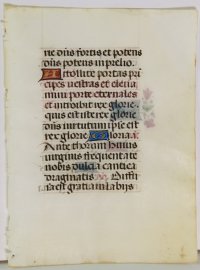 ne dñs fortis et potens
dñs potens in prelio.
Attollite portas prī
cipes vestras et eleua
mini porte eternales
et introibit rex glorie.
quis est iste rex glorie
dñs uirtutum ipse est
rex glorie Gloria.
Ante thorum huius
uirginis frequentate
nobis dulcia cantica
dragmatis. Diffu
sa est gratia in labijs